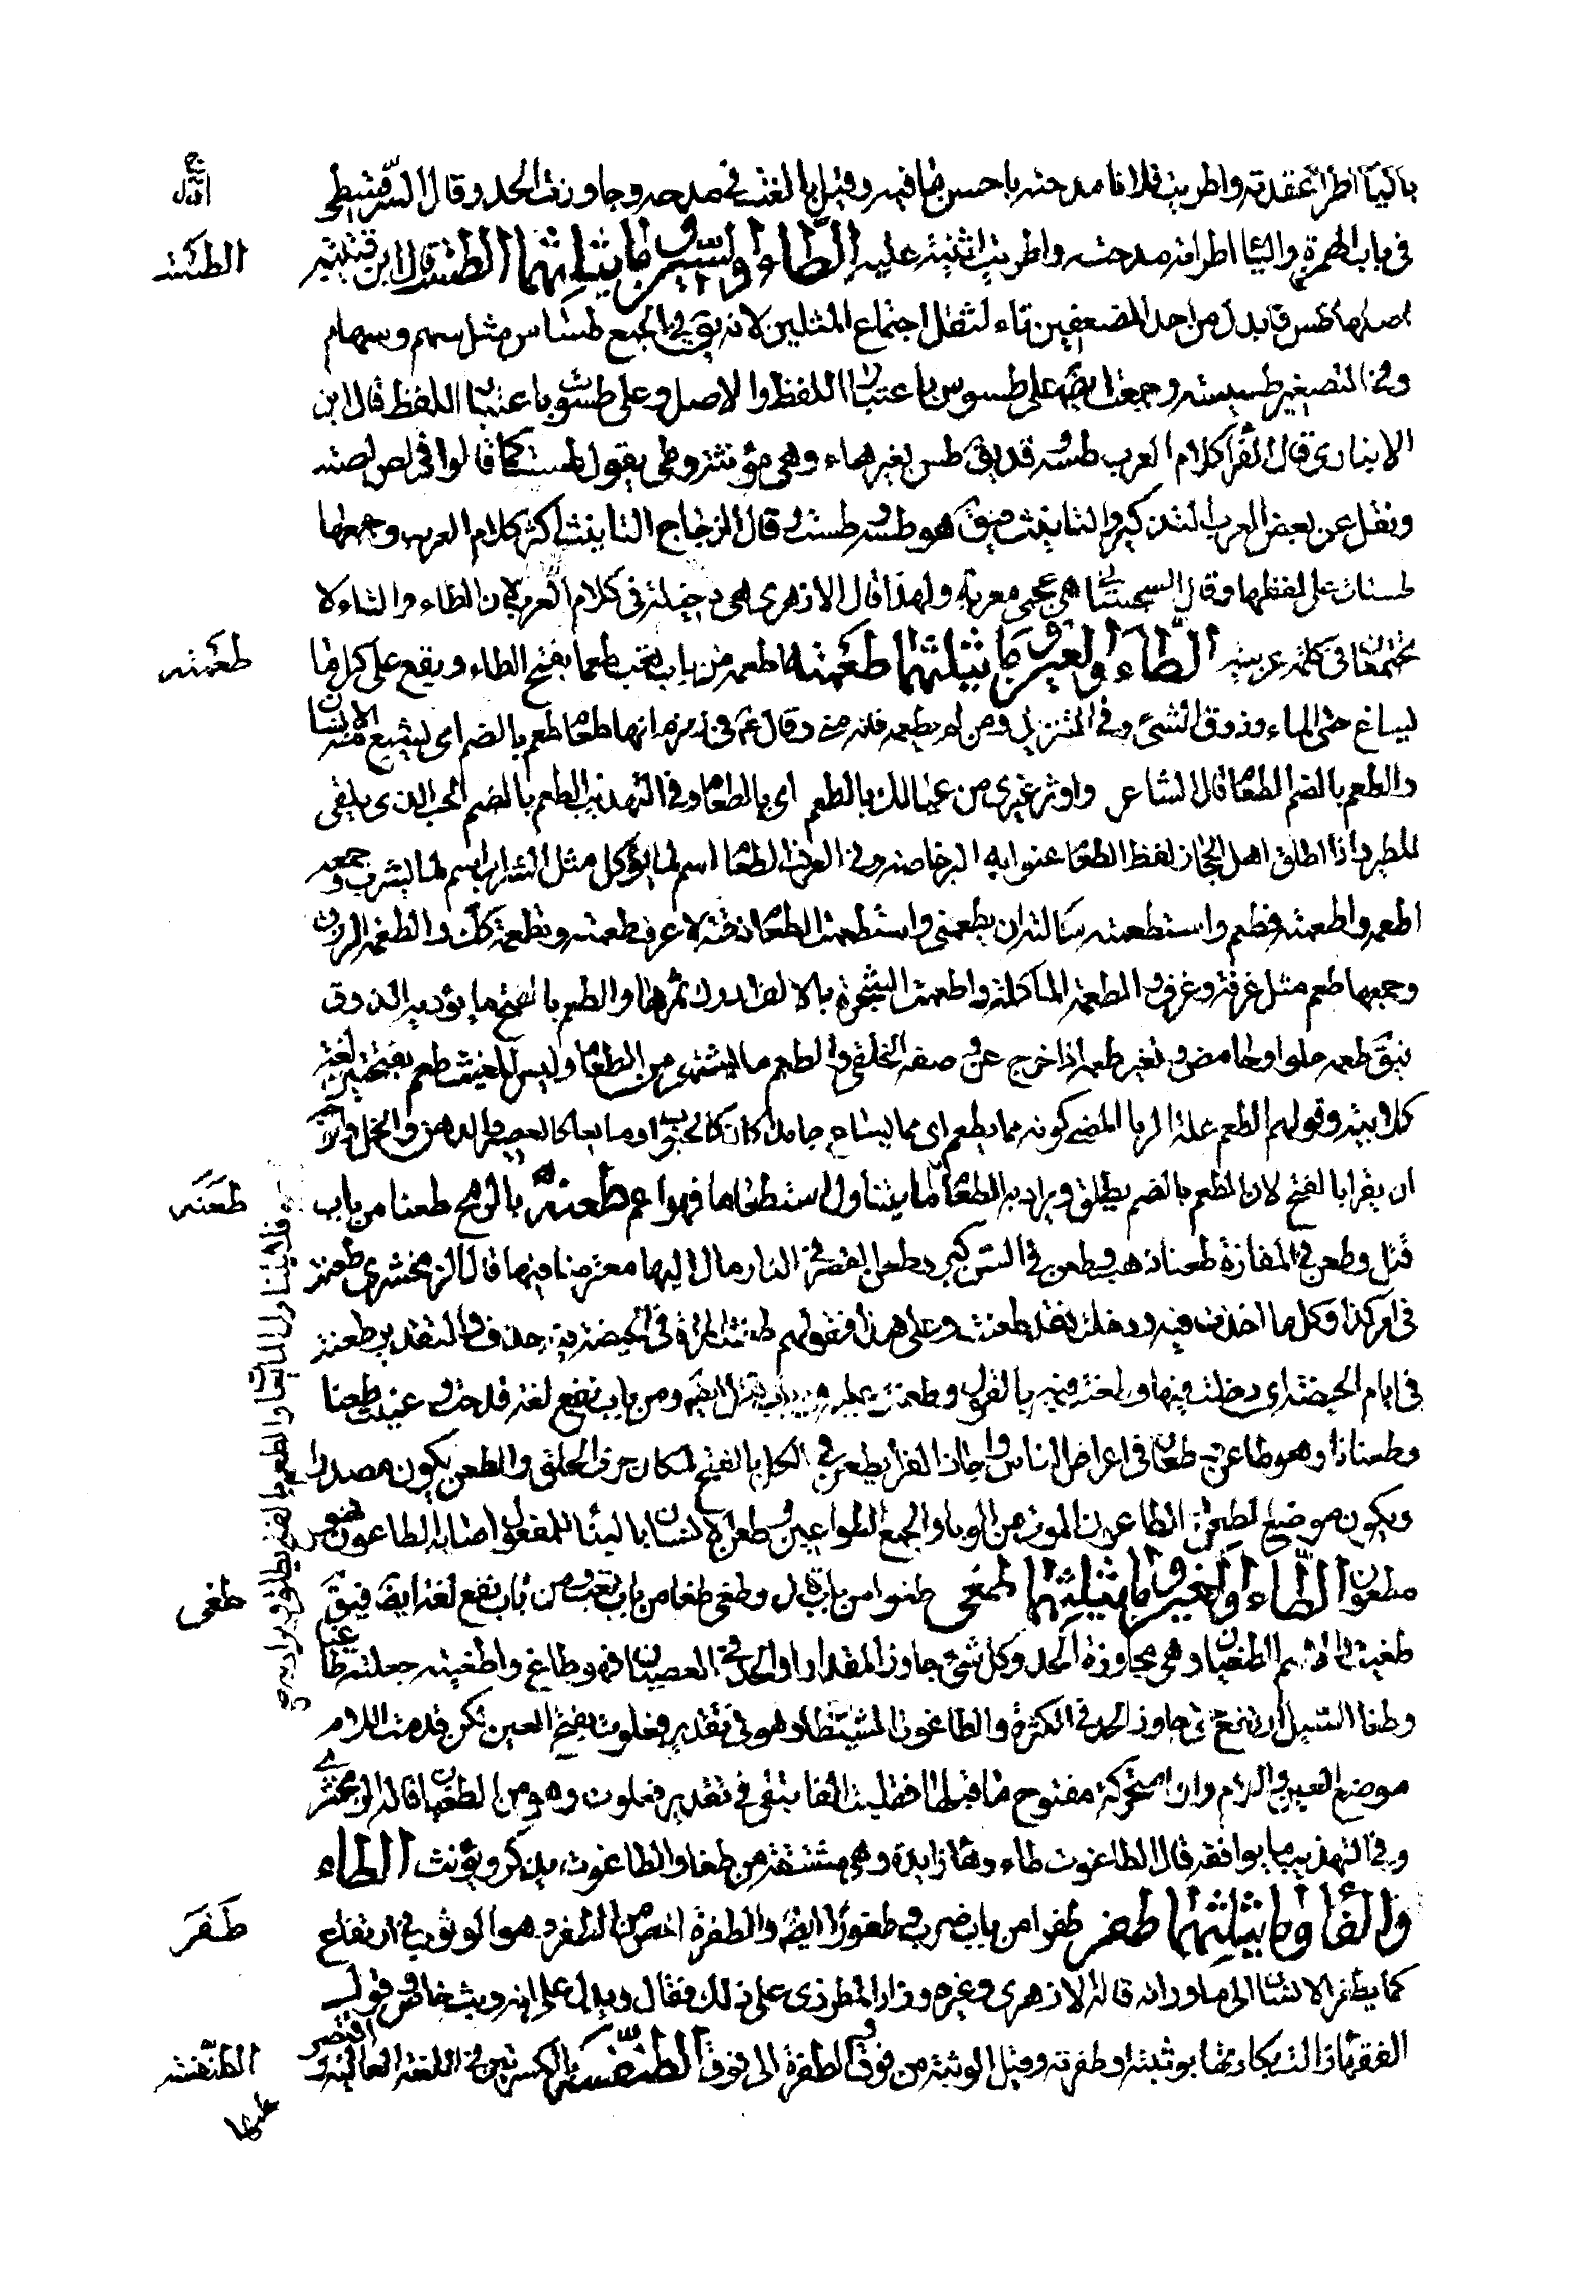 بالياء اطراء عقدته واطريت فلانا مدحته باحسن ما فيه وقيل بالغت في مدحه وجاوزت الحد وقال السرقسطي
في باب الهمزة والياء اطراته مدحته واطريته اثنيت عليه الطاء والسين وما يثلثهما الطست قال ابن قتيبة
اصلها طس فابدل من احد المضعفين تاء لثقل اجتماع المثلين لانه يق في الجمع طساس مثل سهم وسهام
وفي التصغير طسيسة وجمعت ايضا على طسوس باعتبار اللفظ والاصل وعلى طسوت باعتبار اللفظ قال ابن
الانباري قال الفرا كلام العرب طسة وقد يق طس بغير هاء وهي مؤنثة وطي يقول طست كما قالوا في لص لصت
ونقل عن بعض العرب التذكير والتانيث فيق هو طسة وطست وقال الزجاج التانيث اكثر كلام العرب وجمعها
طستات على لفظها وقال السجستاني هي عجمي معربة ولهذا قال الازهري هي دخيلة في كلام العرب لان الطاء والتاء لا
يجتمعان في كلمة عربية الطاء والعين وما يثلثهما طعمته اطعمه من باب تعب طعما بفتح الطاء ويقع على كل ما
يساغ حتى الماء وذوق الشئ وفي التنزيل ومن لم يطعمه فانه مني وقال عم في زمزم انها طعام طعم بالضم اي يشبع منه الانسان
والطعم بالضم الطعام قال الشاعر واوثر غيري من عيالك بالطعم اي بالطعام وفي التهذيب الطعم بالضم الحب الذي يلقى
للطير واذا اطلق اهل الحجاز لفظ الطعام عنوا به البر خاصة وفي العرف الطعام اسم لما يؤكل مثل الشراب اسم لما يشرب وجمعه
اطعمة واطعمته فطعم واستطعمته سالته ان يطعمني واستطعمت الطعام ذقته لاعرف طعمه وتطعمته كك والطعمة الرزق
وجمعها طعم مثل غرفة وغرف والمطعمة الماكلة واطعمت الشجرة بالالف ادرك ثمرها والطعم بالفتح ما يؤديه الذوق
فيق طعمه حلو او حامض وتغير طعمه اذا خرج عن صفة الخلقي والطعم ما يشتهى من الطعام وليس للغث طعم بفتحتين لغة
كلابية وقولهم الطعم علة الربا المعنى كونه مما يطعم اي مما يساغ جامدا كان كالحبوب او مايعا كالعصير والدهن والخل والاولى
ان يقرا بالفتح لان الطعم بالضم يطلق ويراد به الطعام فلا يتناول الماء والطعم بالفتح يطلق ويراد به ما يتناول استطعاما فهو اعم طعنه بالرمح طعنا من باب
قتل وطعن في المفازة طعنا ذهب وطعن في السن كبر وطعن الغصن في الدار مال اليها معترضا فيها قال الزمخشري طعنت
في امر كذا وكل ما اخذت فيه ودخلت فقد طعنت وعلى هذا فقولهم طعنت المراة في الحيضة فيه حذف والتقدير طعنت
في ايام الحيضة اي دخلت فيها وطعنت فيه بالقول وطعنت عليه من باب قتل ايضا ومن باب نفع لغة قدحت وعبت طعنا
وطعنانا وهو طاعن وطعان في اعراض الناس واجاز الفرا يطعن في الكل بالفتح لمكان حرف الحلق والمطعن يكون مصدرا
ويكون موضع الطعن والطاعون الموت من الوبا والجمع الطواعين وطعن الانسان بالبناء للمفعول اصابه الطاعون فهو
مطعون الطاء والغين وما يثلثهما طغى طغوا من باب قال وطغى طغا من باب تعب ومن باب نفع لغة ايضا فيق
طغيت والاسم الطغيان وهي مجاوزة الحد وكل شئ جاوز المقدار والحد في العصيان فهو طاغ واطغيته جعلته طاغيا
وطغا السيل ارتفع حتى جاوز الحد في الكثرة والطاغوت الشيطان وهو في تقدير فعلوت بفتح العين لكن قدمت اللام
موضع العين واللام واو متحركة مفتوح ما قبلها فقلبت الفا فبقي في تقدير فعلوت وهو من الطغيان قاله الزمخشري
وفي التهذيب ما يوافقه قال الطاغوت طاء وهاء زايدة وهي مشتقة من طغا والطاغوت يذكر ويؤنث الطاء
والفا وما يثلثهما طفر طفرا من باب ضرب وطفورا ايضا والطفرة اخص من الطفر وهو الوثوب في ارتفاع
كما يطفر الانسان الى ما وراءه قاله الازهري وغيره وزاد المطرزي على ذلك فقال ويدل على انه وثب خاص قول
الفقهاء زالت بكارتها بوثبة او طفرة وقيل الوثبة من فوق والطفرة الى فوق الطنفسة بكسرتين في اللغة العالية واقتصر
عليها
الطست
طعمته
طعنه
طغى
طفر
الطنفسة